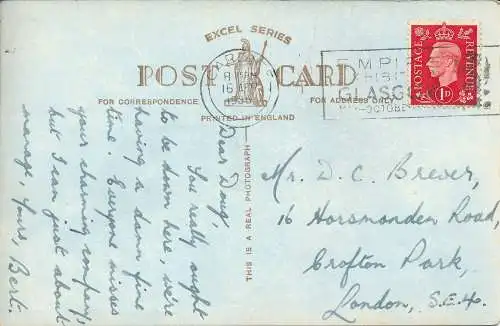 EXCEL SERIES
POST CARD
FOR CORRESPONDENCE
FOR ADDRESS ONLY
PRINTED IN ENGLAND
THIS IS A REAL PHOTOGRAPH
16 AP
GLASG
OCTOBER
POSTAGE
REVENUE
1D
Dear Doug,
You really ought
to be down here, we're
having a damn fine
time. Everyone misses
your charming company,
but I can just about
manage, Yours, Bert.
Mr. D. C. Brewer,
16 Horsmonden Road,
Crofton Park,
London, S.E.4.